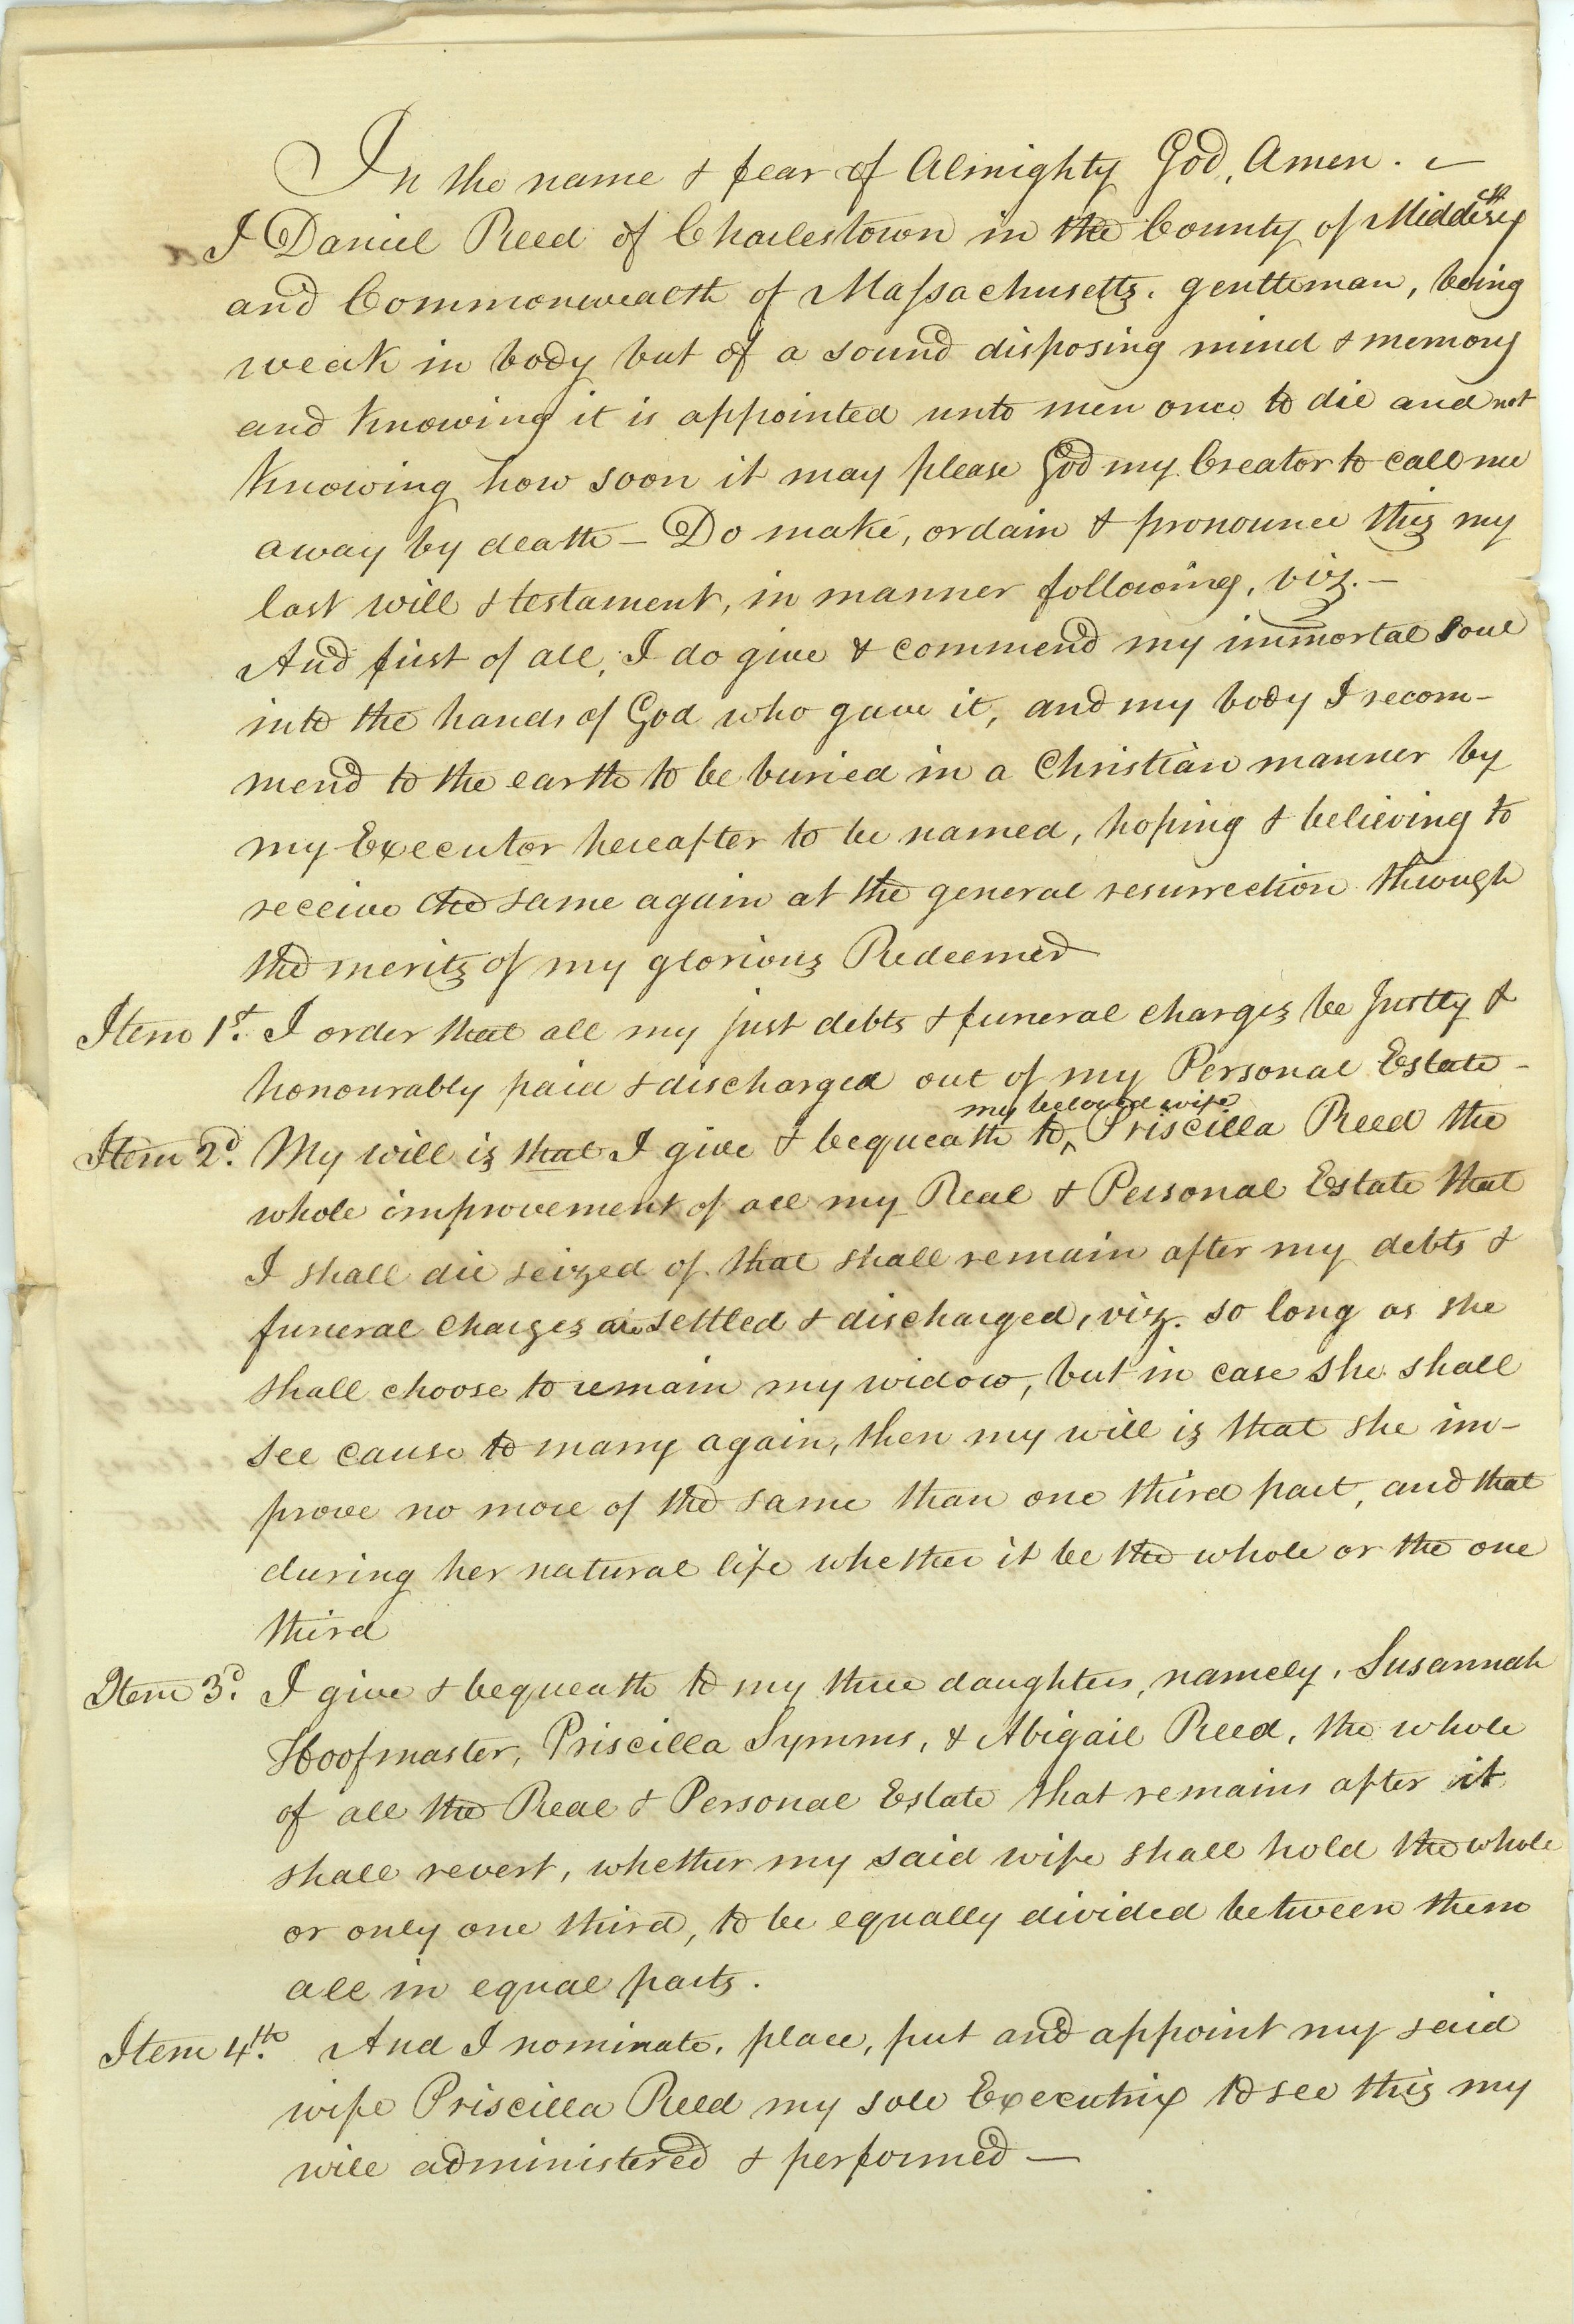 In the name & fear of Almighty God, Amen. —
I Daniel Reed of Charlestown in the County of Middlesex
and Commonwealth of Massachusetts. gentleman, being
weak in body but of a sound disposing mind & memory
and knowing it is appointed unto men once to die and not
knowing how soon it may please God my Creator to call me
away by death — Do make, ordain & pronounce this my
last will & testament, in manner following, viz. —
And first of all, I do give & commend my immortal soul
into the hands of God who gave it, and my body I recom-
mend to the earth to be buried in a Christian manner by
my Executor hereafter to be named, hoping & believing to
receive the same again at the general resurrection through
the merits of my glorious Redeemer
Item 1st. I order that all my just debts & funeral charges be Justly &
honourably paid & discharged out of my Personal Estate -
my beloved wife
Item 2d. My will is that I give & bequeath to ^ Priscilla Reed the
whole improvement of all my Real & Personal Estate that
I shall die seized of that shall remain after my debts &
funeral charges are settled & discharged, viz. so long as she
shall choose to remain my widow, but in case she shall
see cause to marry again, then my will is that she im-
prove no more of the same than one third part, and that
during her natural life whether it be the whole or the one
third
Item 3d. I give & bequeath to my three daughters, namely, Susannah
Hoofmaster, Priscilla Symms, & Abigail Reed, the whole
of all the Real & Personal Estate that remains after it
shall revert, whether my said wife shall hold the whole
or only one third, to be equally divided between them
all in equal parts.
Item 4th. And I nominate, place, put and appoint my said
wife Priscilla Reed my sole Executrix to see this my
will administered & performed —